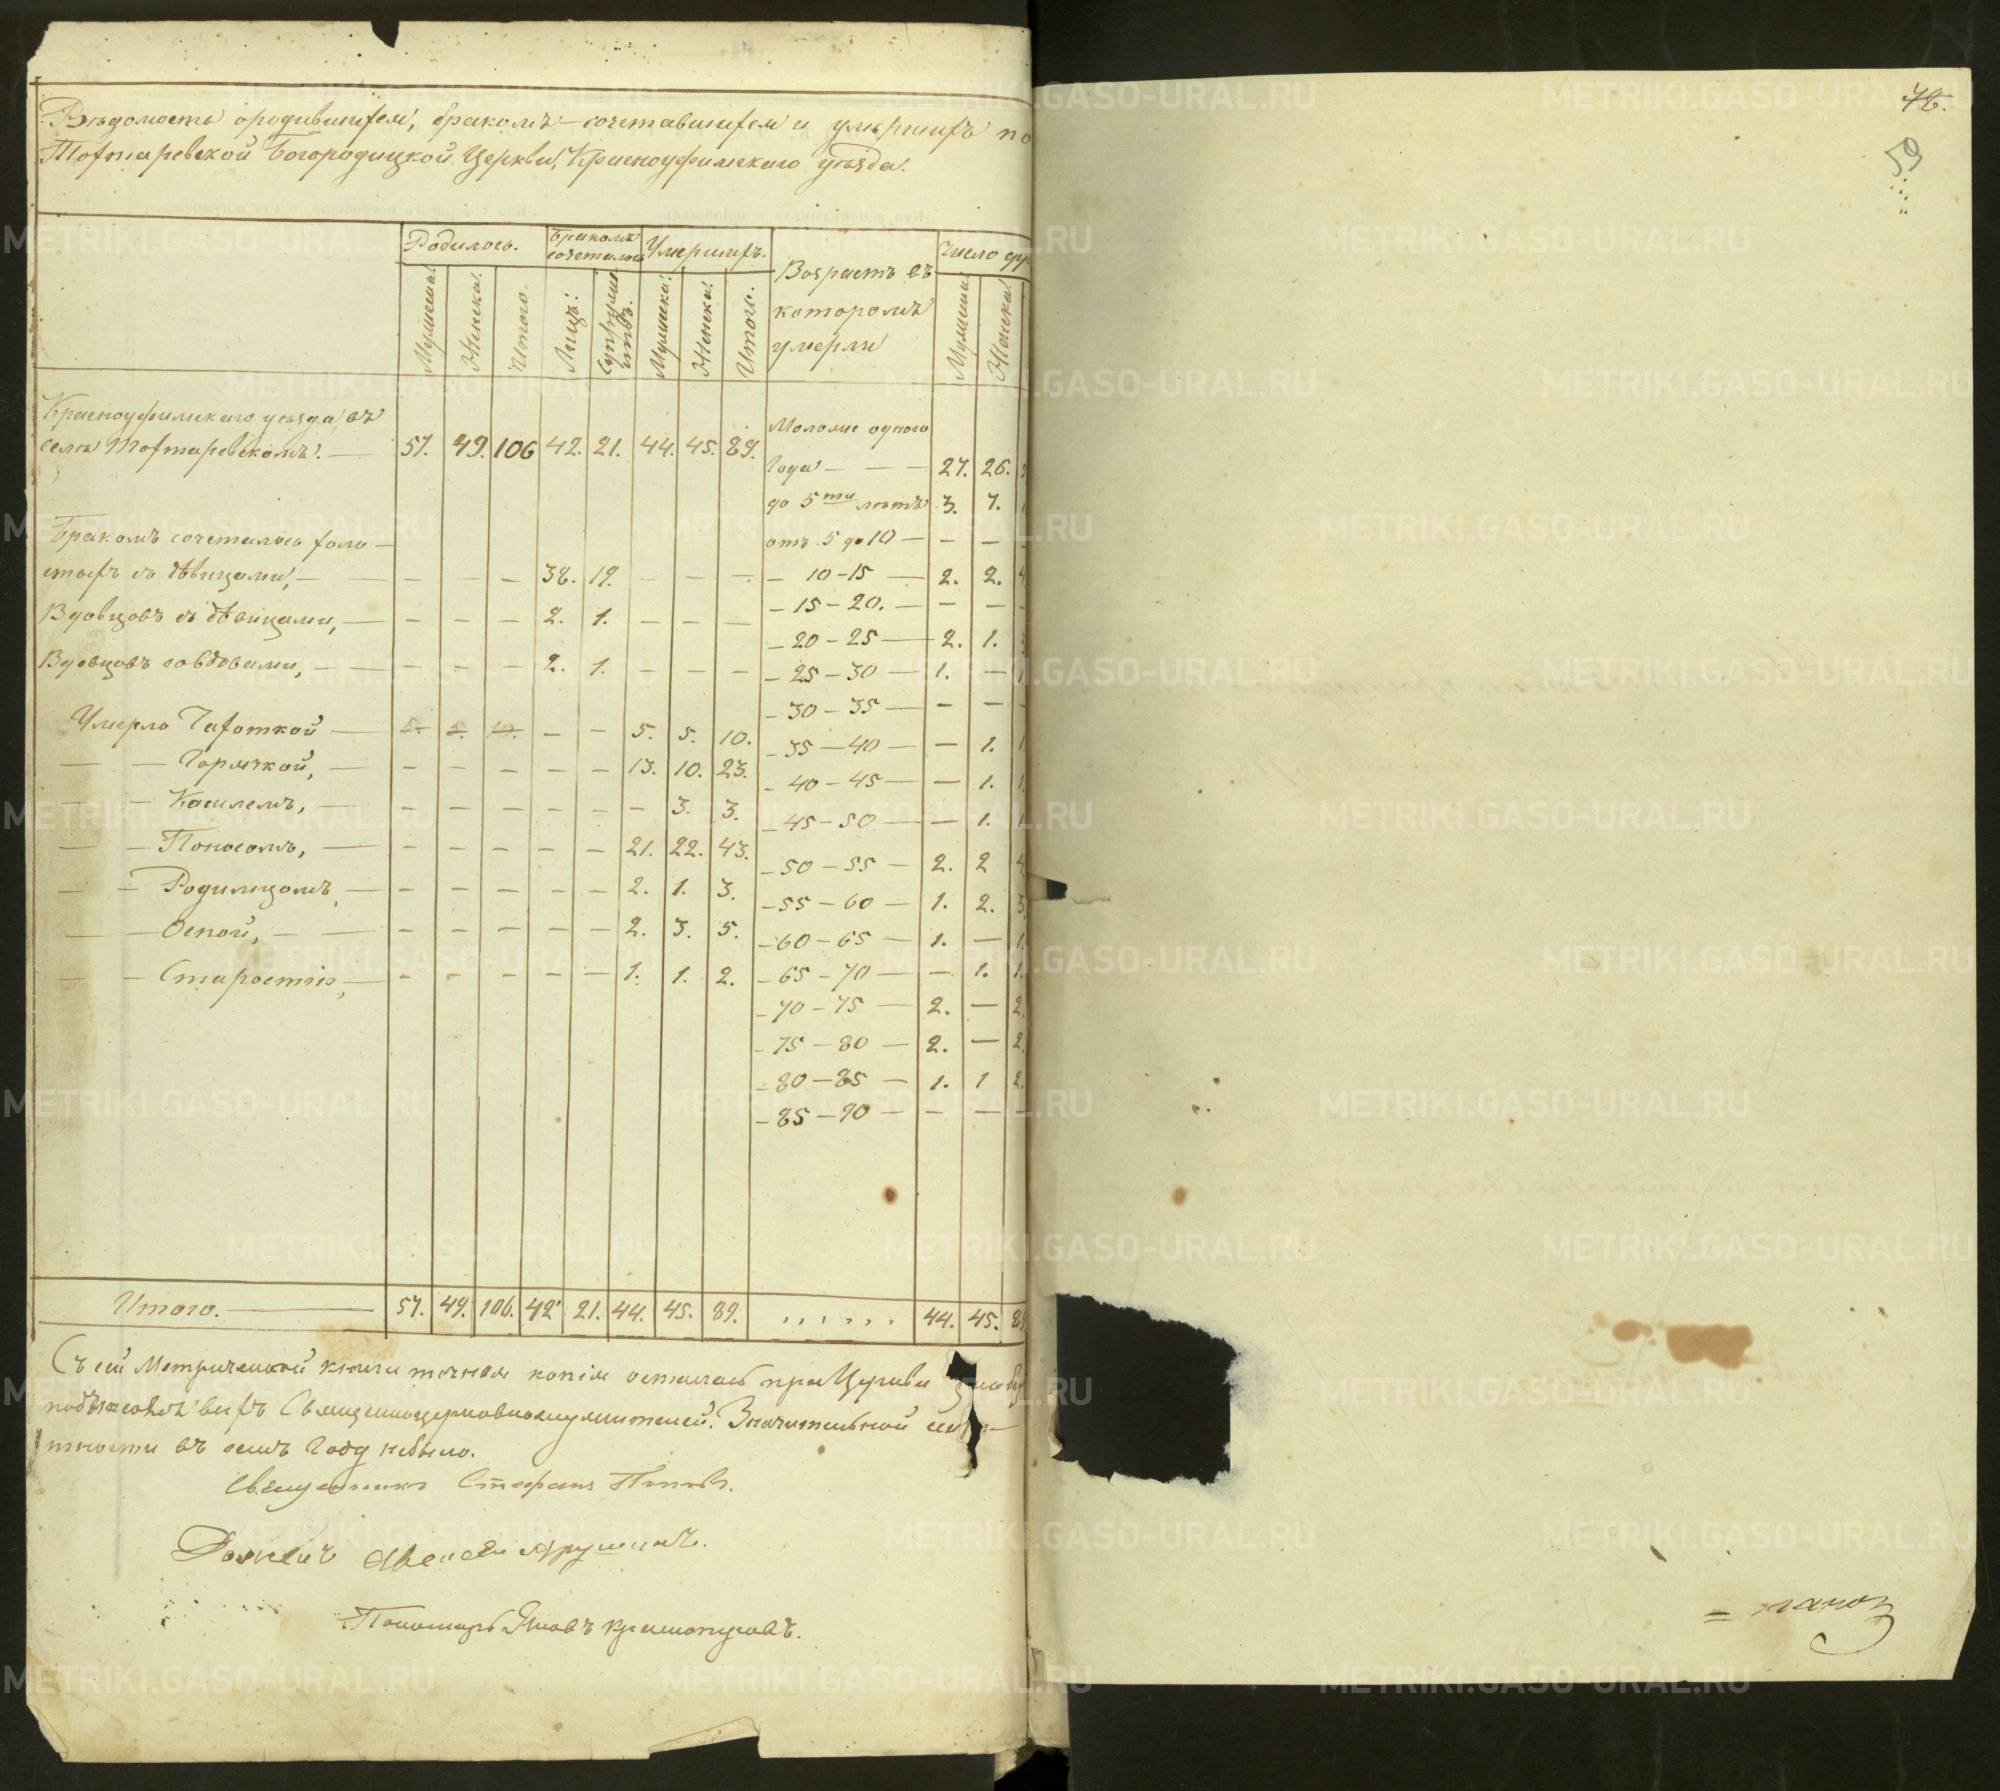 Вѣдомость о родившихся, бракомъ сочетавшихся и умершихъ по
Тохтаревской Богородицкой Церкви, Красноуфимскаго уѣзда.
Родилось. Бракомъ сочеталось Умершихъ. Возрастъ въ которомъ умерли Число ду
Мужеска. Женска. Итого. Лицъ. Супружествъ. Мужеска. Женска. Итого. Мужеска. Женска.
Красноуфимскаго уѣзда въ
селѣ Тохтаревскомъ. — 57. 49. 106 42. 21. 44. 45. 89.
Моложе одного
Года — — — 27. 26.
до 5ти лѣтъ 3. 7.
отъ 5 до 10 — — —
— 10 – 15 — 2. 2. 4
— 15 – 20. — — —
— 20 – 25 — 2. 1.
— 25 – 30 — 1. —
— 30 – 35 — — —
— 35 – 40 — — 1. 1.
— 40 – 45 — — 1. 1.
— 45 – 50 — — 1. 1
— 50 – 55 — 2. 2 4
— 55 – 60 — 1. 2. 3.
— 60 – 65 — 1. — 1.
— 65 – 70 — — 1. 1.
— 70 – 75 — 2. — 2.
— 75 – 80 — 2. — 2.
— 80 – 85 — 1. 1 2.
— 85 – 90 — — — —
Бракомъ сочеталось холо—
стыхъ съ дѣвицами, — — — — 38. 19. — — —
Вдовцовъ съ дѣвицами, — — — — 2. 1. — — —
Вдовцовъ со вдовами, — — — — 2. 1. — — —
Умерло Чахоткой — 5. 5. 10. — — 5. 5. 10.
— — Горячкой, — — — — — — 13. 10. 23.
— — Кашлемъ, — — — — — — — 3. 3.
— — Поносомъ, — — — — — — 21. 22. 43.
— — Родимцомъ, — — — — — — 2. 1. 3.
— — Оспой, — — — — — — 2. 3. 5.
— — Старостію, — — — — — — 1. 1. 2.
Итого. — 57. 49. 106. 42. 21. 44. 45. 89. . . . . . . 44. 45. 89
Съ сей Метрической книги точная копія осталась при Церкви
Священноцерковнослужителей. Значительной
въ семъ Году небыло.
Священникъ Стефанъ Поповъ.
Пономарь Яковъ
76.
59
METRIKI.GASO-URAL.RU